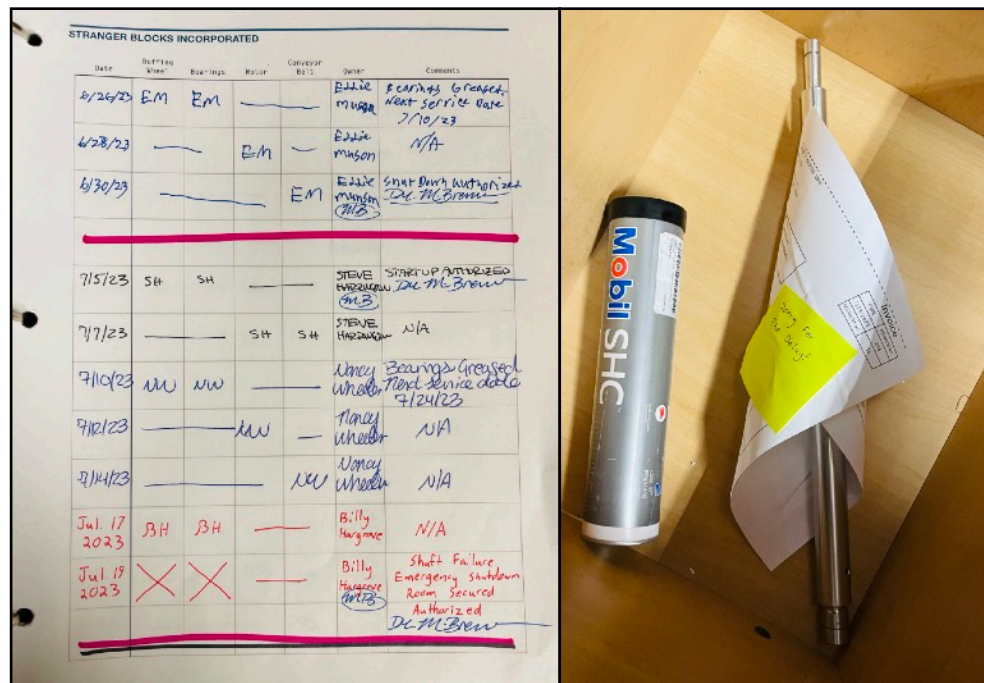 STRANGER BLOCKS INCORPORATED
Date Buffing Wheel Bearings Motor Conveyor Belt Owner Comments
6/26/23 EM EM Eddie Munson Bearings Greased, Next Service Date 7/10/23
6/28/23 EM Eddie Munson N/A
6/30/23 EM Eddie Munson MB Shut Down Authorized Dr. M. Brenner
7/5/23 SH SH STEVE HARRINGTON MB STARTUP AUTHORIZED Dr. M. Brenner
7/7/23 SH SH STEVE HARRINGTON N/A
7/10/23 NW NW Nancy Wheeler Bearings Greased Next service date 7/24/23
7/12/23 NW Nancy Wheeler N/A
7/14/23 NW Nancy Wheeler N/A
Jul. 17 2023 BH BH Billy Hargrove N/A
Jul 19 2023 Billy Hargrove MB Shaft Failure Emergency Shutdown Room Secured Authorized Dr. M. Brenner
Mobil SHC
Invoice
Sorry for
the Delay!